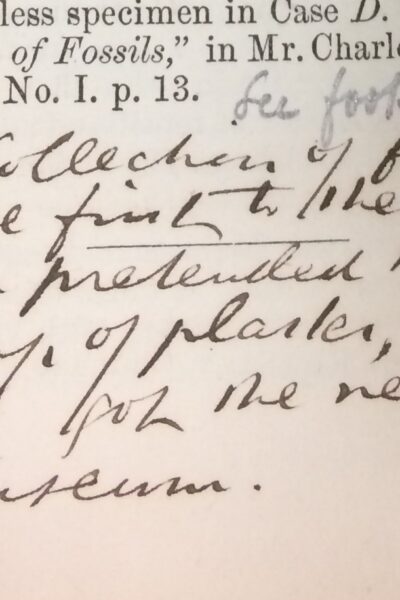 less specimen in Case D.
of Fossils,” in Mr. Charl
No. I. p. 13.
See foot
ollection of
e first to the
pretended
of plaster,
got the ne
useum.